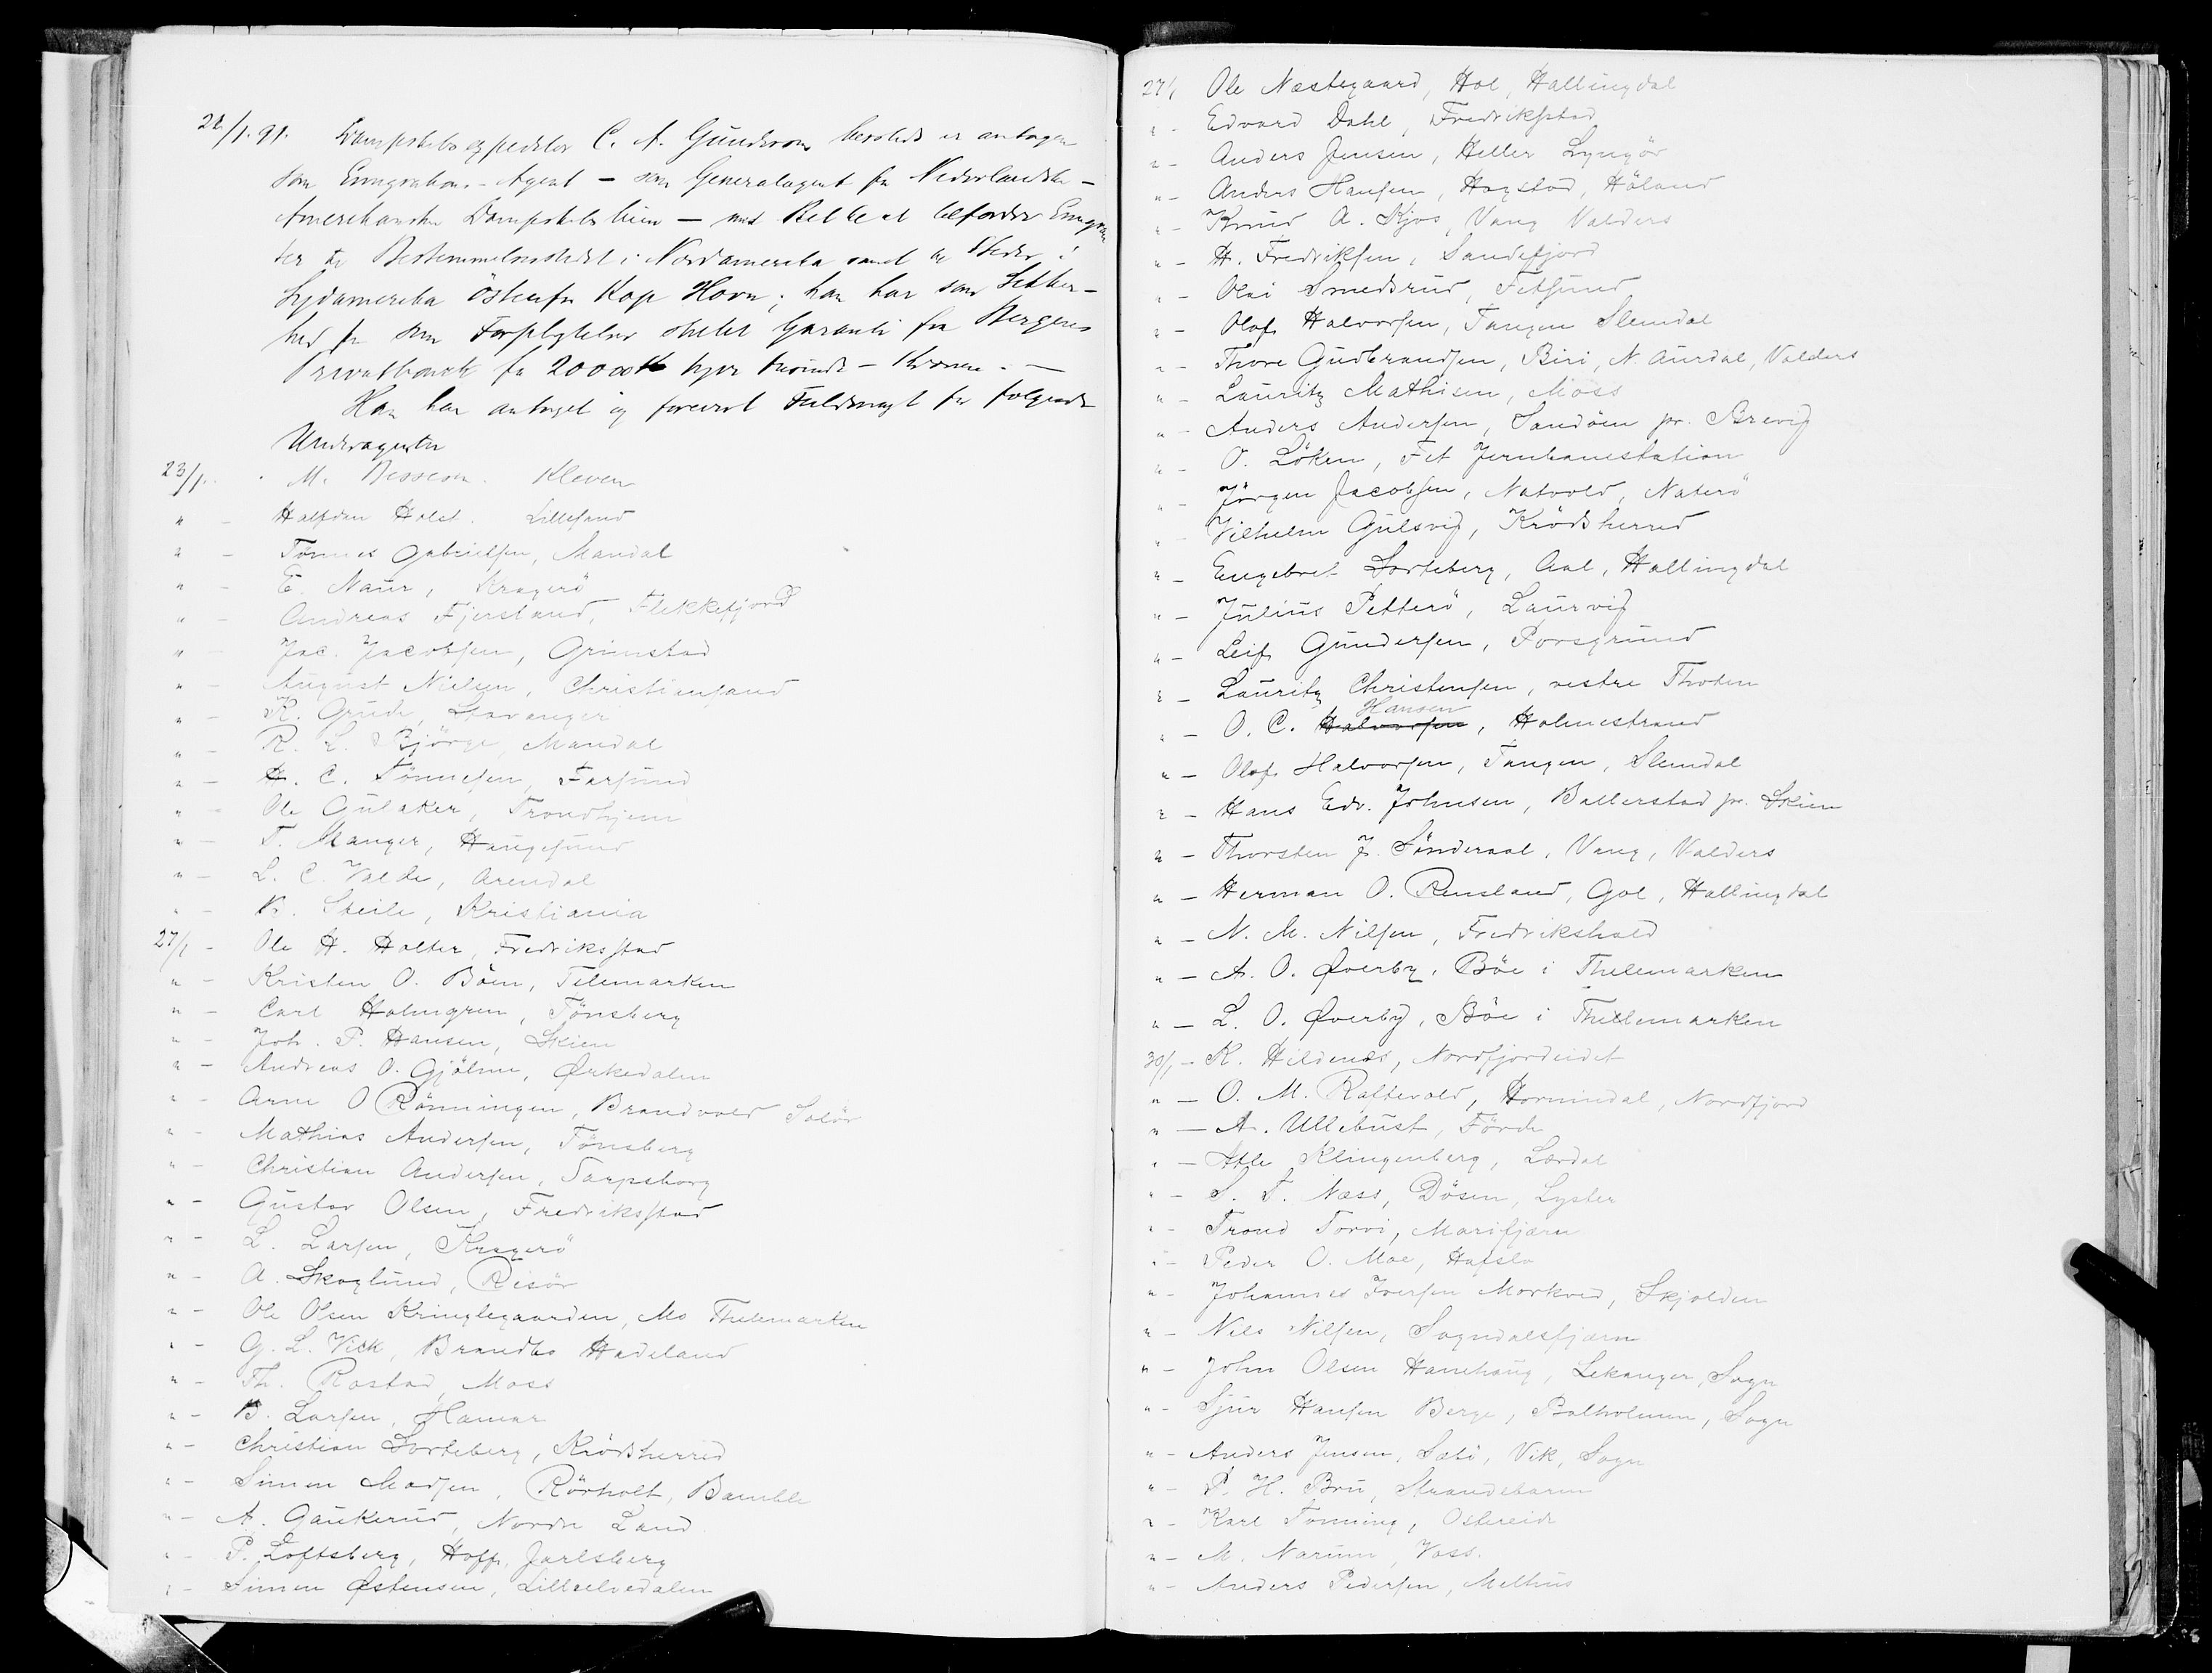 22/1. 91. Dampskibsexpeditør C. A. Gundersen hersteds er antagen
som Emigrations-Agent – som Generalagent for Nederlandske-
Amerikanske Dampskibslinie – med Ret til at befordre Emigran
ter til Bestemmelsesstedet i Nordamerika samt til Steder i
Sydamerika östenfor Kap Horn; han har som Sikker-
hed for sine Forpligtelser stillet Garanti fra Bergens
Privatbank for 20000 Kr tyve tusinde – Kroner. –
Han har antaget og forevist Fuldmagt for følgende
Underagenter
23/1. M. Kleven
" – Halfdan Holst. Lillesand
" – Tönnes Gabrielsen, Mandal
" – E. Naur, Kragerö
" – Andreas Fjersland, Flekkefjord
" – Jac. Jacobsen, Grimstad
" – August Nielsen, Christiansand
" – K. Grude, Stavanger
" – R. L. Bjørge, Mandal
" – H. C. Tönnesen, Farsund
" – Ole Gulaker, Trondhjem
" – T. Manger, Haugesund
" – L. C. Valde, Arendal
" – B. Steile, Kristiania
27/1 – Ole H. Holter, Fredriksstad
" – Kristen O. Böen, Telemarken
" – Carl Holmgren, Tönsberg
" – Joh. P. Hansen, Skien
" – Andreas O. Gjölme, Ørkedalen
" – Arne O Rönningen, Brandvold Solör
" – Mathias Andersen, Tönsberg
" – Christian Andersen, Sarpsborg
" – Gustav Olsen, Fredriksstad
" – L. Larsen, Kragerö
" – A. Skoglund, Risör
" – Ole Olsen Kringlegaarden, Mo Thelemarken
" – G. L. Vick, Brandbo Hadeland
" – Th. Rostad, Moss
" – B. Larsen, Hamar
" – Christian Sorteberg, Krödsherred
" – Simen Madsen, Rörholt, Bamble
" – A. Gaukerud, Nordre Land
" – P. Loftsberg, Hoff, Jarlsberg
" – Simen Østensen, Lilleelvedalen
27/1 Ole Nestegaard, Hol, Hallingdal
" – Edvard Dahl, Fredriksstad
" – Anders Jensen, Heller Lyngör
" – Anders Hansen, Hogstad, Höland
" – Knud A. Kjos, Vang Valders
" – H. Fredriksen, Sandefjord
" – Olai Smedsrud, Fetsund
" – Olaf Halvorsen, Tangen Slemdal
" – Thore Gudbrandsen, Biri, N. Aurdal, Valders
" – Lauritz Mathisen, Moss
" – Anders Andersen, Sandöen pr. Brevig
" – O. Löken, Fet Jernbanestation
" – Jörgen Jacobsen, Natvold, Naterö
" – Vilhelm Gulsvig, Krödsherred
" – Engebret Sorteberg, Aal, Hallingdal
" – Julius Petterö, Laurvig
" – Leif Gundersen, Porsgrund
" – Lauritz Christensen, vestre Thoten
" – O. C. Halvorsen Hansen, Holmestrand
" – Olaf Halvorsen, Tangen, Slemdal
" – Hans Edv. Johnsen, Ballerstad pr. Skien
" – Thorsten J. Sönderaal, Vang, Valders
" – Herman O. Rensland, Gol, Hallingdal
" – N. M. Nilsen, Fredrikshald
" – A. O. Øverby, Böe i Thelemarken
" – L. O. Øverby, Böe i Thellemarken
30/1 – K. Hildenes, Nordfjordeidet
" – O. M. Raftevold, Hornindal, Nordfjord
" – A. Ullebust, Förde
" – Atle Klingenberg, Lærdal
" – S. T. Næss, Dösen, Lyster
" – Trond Torvi, Marifjæren
" – Peder O. Moe, Hafslo
" – Johannes Iversen Morkved, Skjolden
" – Nils Nilsen, Sogndalsfjæren
" – John Olsen Hanehaug, Lekanger, Sogn
" – Sjur Hansen Berge, Balholmen, Sogn
" – Anders Jensen, Sætö, Vik, Sogn
" – P. H. Bru, Strandebarm
" – Karl Tonning, Ostereide
" – M. Narum, Voss.
" – Anders Pedersen, Melhus